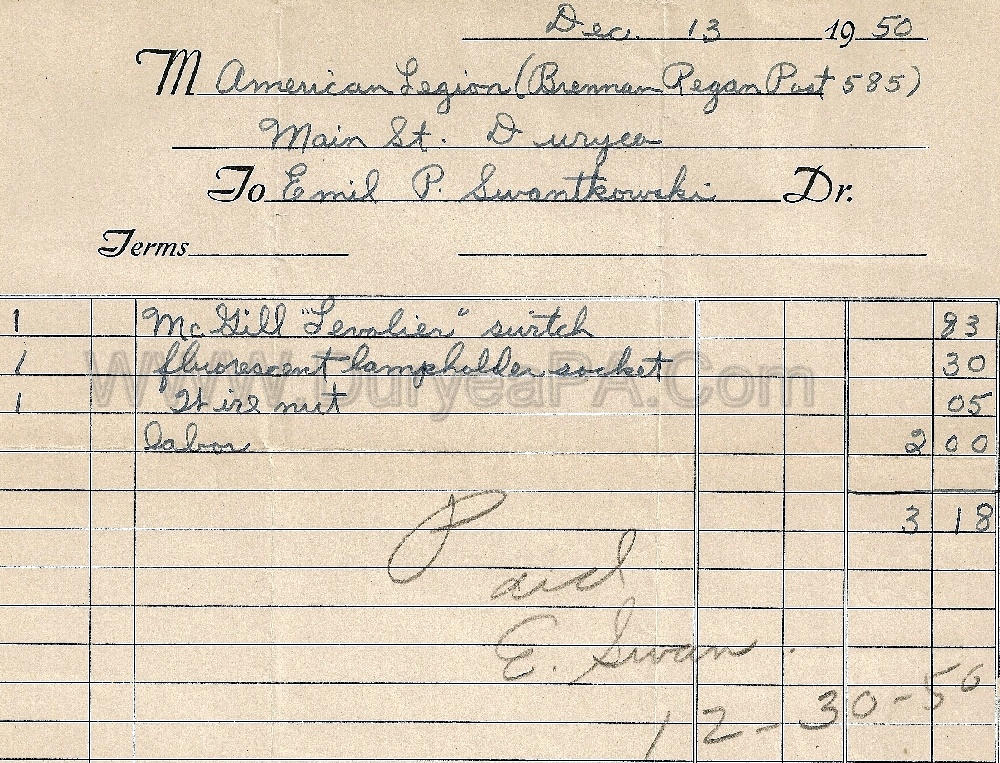 Dec. 13 1950
M American Legion (Brennan Regan Post 585)
Main St. Duryea
To Emil P. Swantkowski Dr.
Terms
1 McGill "Levolier" switch 83
1 fluorescent lampholder socket 30
1 Wire nut 05
labor 2 00
3 18
Paid
E. Swan.
12-30-50
www.DuryeaPA.Com